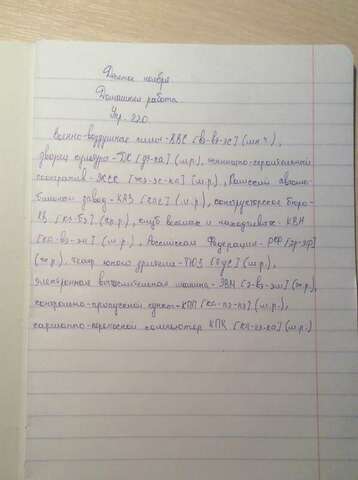 Домашняя работа
Упр. 220.
Военно-воздушные силы - ВВС [вэ-вэ-эс] (мн.ч.),
дворец культуры - ДК [дэ-ка] (м.р.), жилищно-строительный
кооператив - ЖСК [жэ-эс-ка] (м.р.),
завод - (м.р.), конструкторское бюро -
КБ [ка-бэ] (ср.р.), клуб веселых и находчивых - КВН
[ка-вэ-эн] (м.р.), Российская Федерация - РФ [эр-эф]
(ж.р.), театр юного зрителя - ТЮЗ [тюс] (м.р.),
электронная вычислительная машина - ЭВМ [э-вэ-эм] (ж.р.),
контрольно-пропускной пункт - КПП [ка-пэ-пэ] (м.р.),
компьютер КПК [ка-пэ-ка] (м.р.)